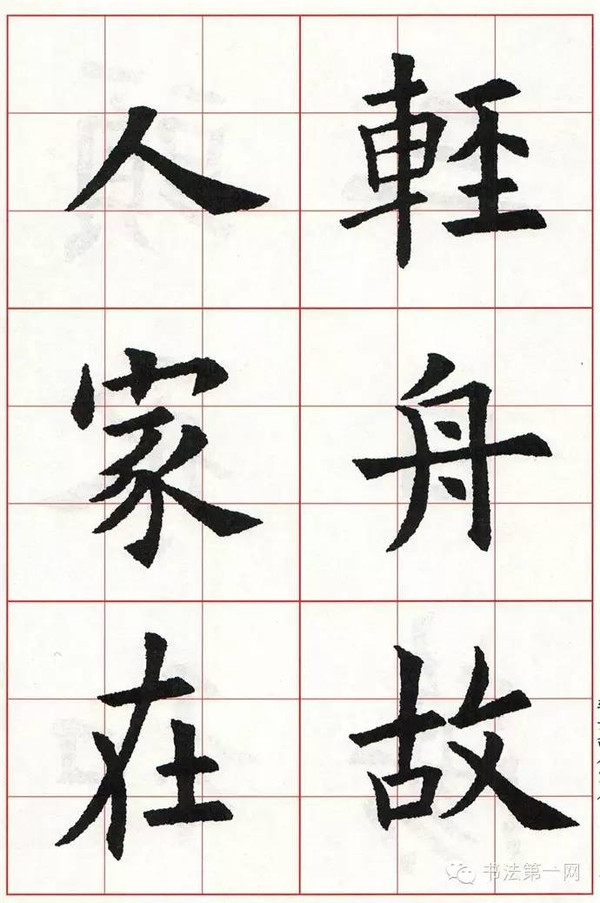 輕舟故
人家在
书法第一网